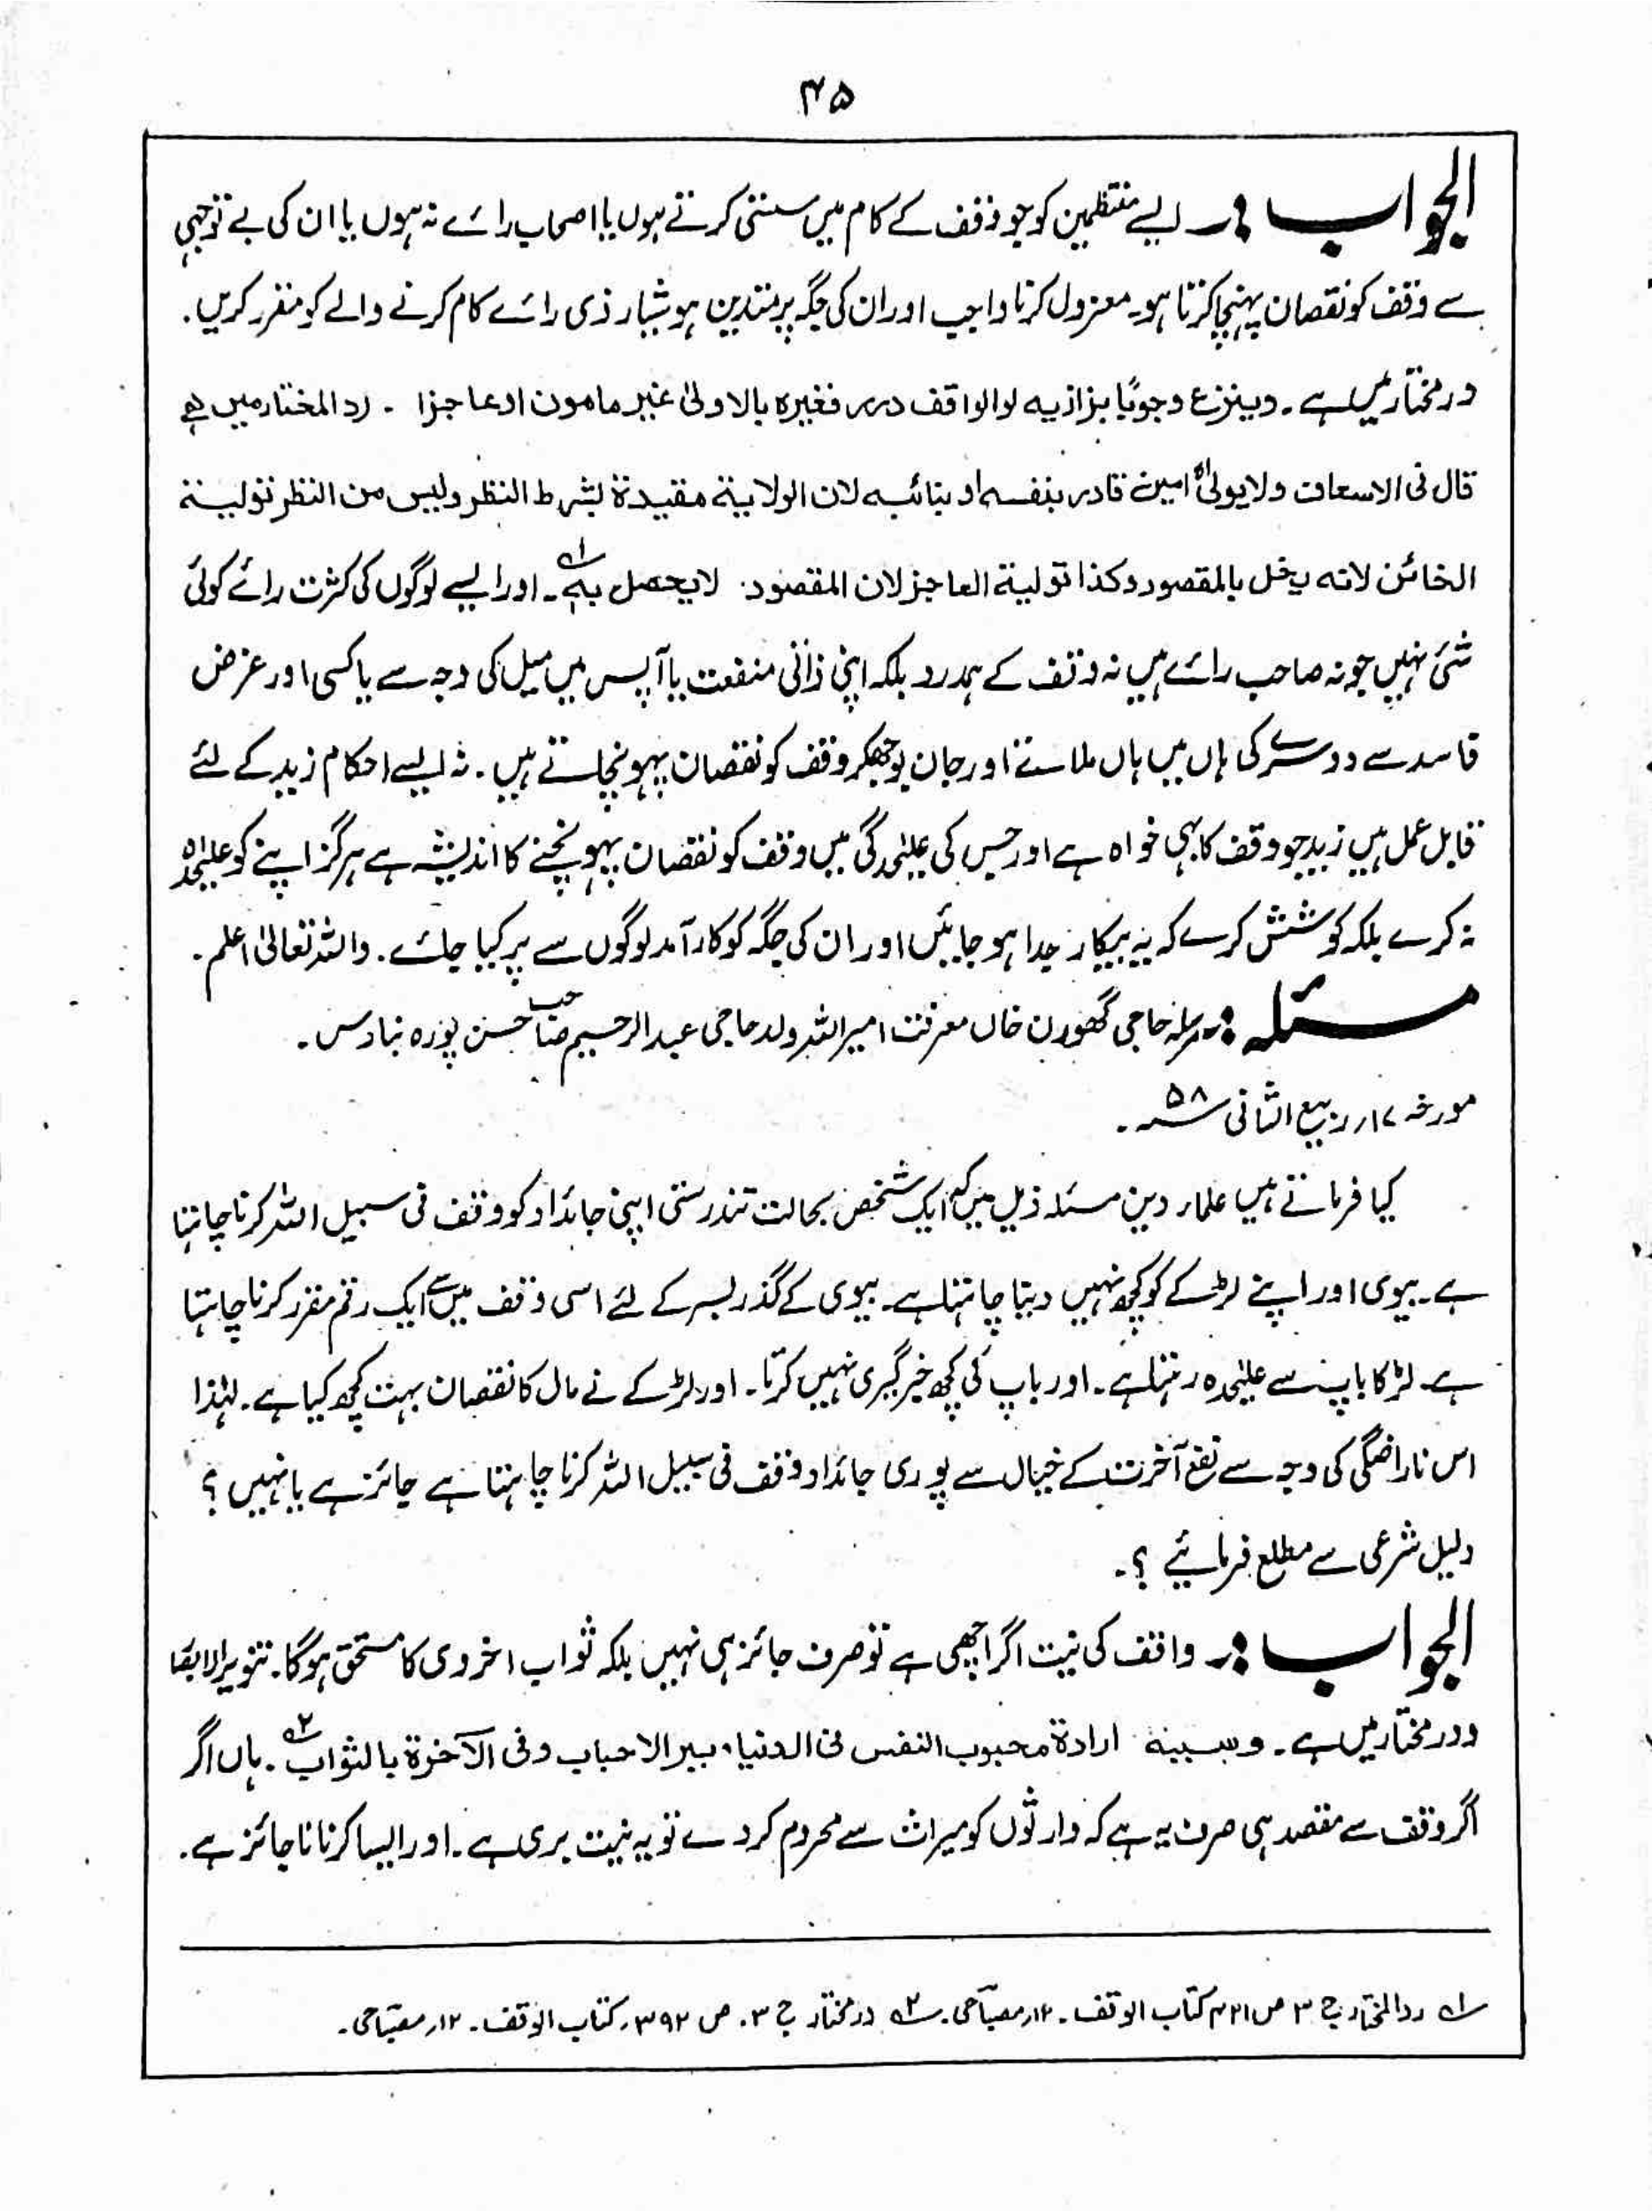 ۴۵
الجواب :۔ ایسے منتظمین کو جو وقف کے کام میں سستی کرتے ہوں یا اصحاب رائے نہ ہوں یا ان کی بے توجہی
سے وقف کو نقصان پہنچا کرتا ہو۔ معزول کرنا واجب اور ان کی جگہ پر متدین ہوشیار ذی رائے کام کرنے والے کو مقرر کریں۔
درمختار میں ہے۔ وینزع وجوبًا بزازیہ لو الواقف درر فغیرہ بالاولیٰ غیر مامون او عاجزا ۔ ردالمختار میں ہے
قال فی الاسعاف ولا یولیٰ الا امین قادر بنفسہ او بنائبہ لان الولایۃ مقیدۃ بشرط النظر ولیس من النظر تولیۃ
الخائن لانہ یخل بالمقصود وکذا تولیۃ العاجز لان المقصود لا یحصل بہ ۱ ۔ اور ایسے لوگوں کی کثرت رائے کوئی
شئ نہیں جو نہ صاحب رائے ہیں نہ وقف کے ہمدرد بلکہ اپنی ذاتی منفعت یا آپس میں میل کی وجہ سے یا کسی اور غرض
فاسد سے دوسرے کی ہاں میں ہاں ملاتے اور جان بوجھکر وقف کو نقصان پہونچاتے ہیں۔ نہ ایسے احکام زید کے لئے
قابل عمل ہیں زید جو وقف کا بہی خواہ ہے اور جس کی علیٰحدگی میں وقف کو نقصان پہونچنے کا اندیشہ ہے ہرگز اپنے کو علیٰحدہ
نہ کرے بلکہ کوشش کرے کہ یہ بیکار جدا ہو جائیں اور ان کی جگہ کو کارآمد لوگوں سے پر کیا جائے۔ واللہ تعالیٰ اعلم۔
مسئلہ :۔ مرسلہ حاجی گھورن خاں معرفت امیر اللہ ولد حاجی عبدالرحیم صاحب حسن پورہ بنارس۔
مورخہ ۱۷؍ ربیع الثانی ۵۸ ؁۔
کیا فرماتے ہیں علماء دین مسئلہ ذیل میں کہ ایک شخص بحالت تندرستی اپنی جائداد کو وقف فی سبیل اللہ کرنا چاہتا
ہے۔ بیوی اور اپنے لڑکے کو کچھ نہیں دینا چاہتا ہے۔ بیوی کے گذر بسر کے لئے اسی وقف میں سے ایک رقم مقرر کرنا چاہتا
ہے۔ لڑکا باپ سے علیٰحدہ رہتا ہے۔ اور باپ کی کچھ خبر گیری نہیں کرتا۔ اور لڑکے نے مال کا نقصان بہت کچھ کیا ہے۔ لہٰذا
اس ناراضگی کی وجہ سے نفع آخرت کے خیال سے پوری جائداد وقف فی سبیل اللہ کرنا چاہتا ہے جائز ہے یا نہیں؟
دلیل شرعی سے مطلع فرمائیے؟۔
الجواب :۔ واقف کی نیت اگر اچھی ہے تو صرف جائز ہی نہیں بلکہ ثواب اخروی کا مستحق ہوگا۔ تنویر الابصار
ودرمختار میں ہے۔ وسببہ ارادۃ محبوب النفس فی الدنیا ببر الاحباب وفی الآخرۃ بالثواب ۲ ۔ ہاں اگر
اگر وقف سے مقصد ہی صرف یہ ہے کہ وارثوں کو میراث سے محروم کردے تو یہ نیت بری ہے۔ اور ایسا کرنا ناجائز ہے۔
۱ ردالمختار ج ۳ ص ۴۲۱ کتاب الوقف۔ ۱۲؍ مصباحی۔ ۲ درمختار ج ۳۔ ص ۳۹۲، کتاب الوقف۔ ۱۲؍ مصباحی۔